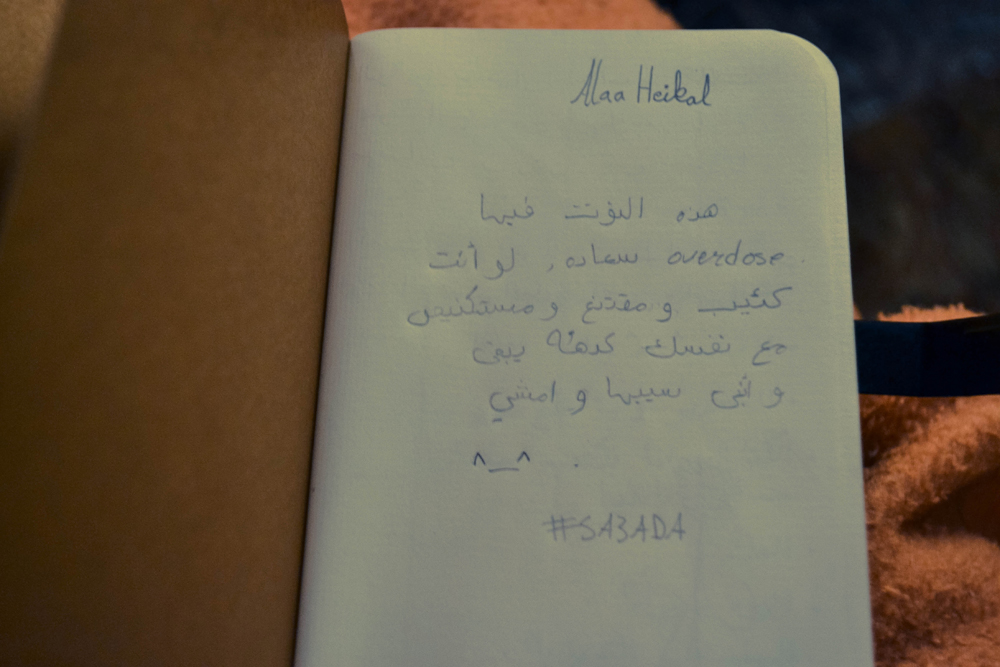 Alaa Heikal
هذه النوت فيها
overdose سعاده, لو أنت
كئيب و مقتنع و مستكنيص
مع نفسك كدهه يبقى
و سيبها و امشي
^_^ .
#SA3ADA